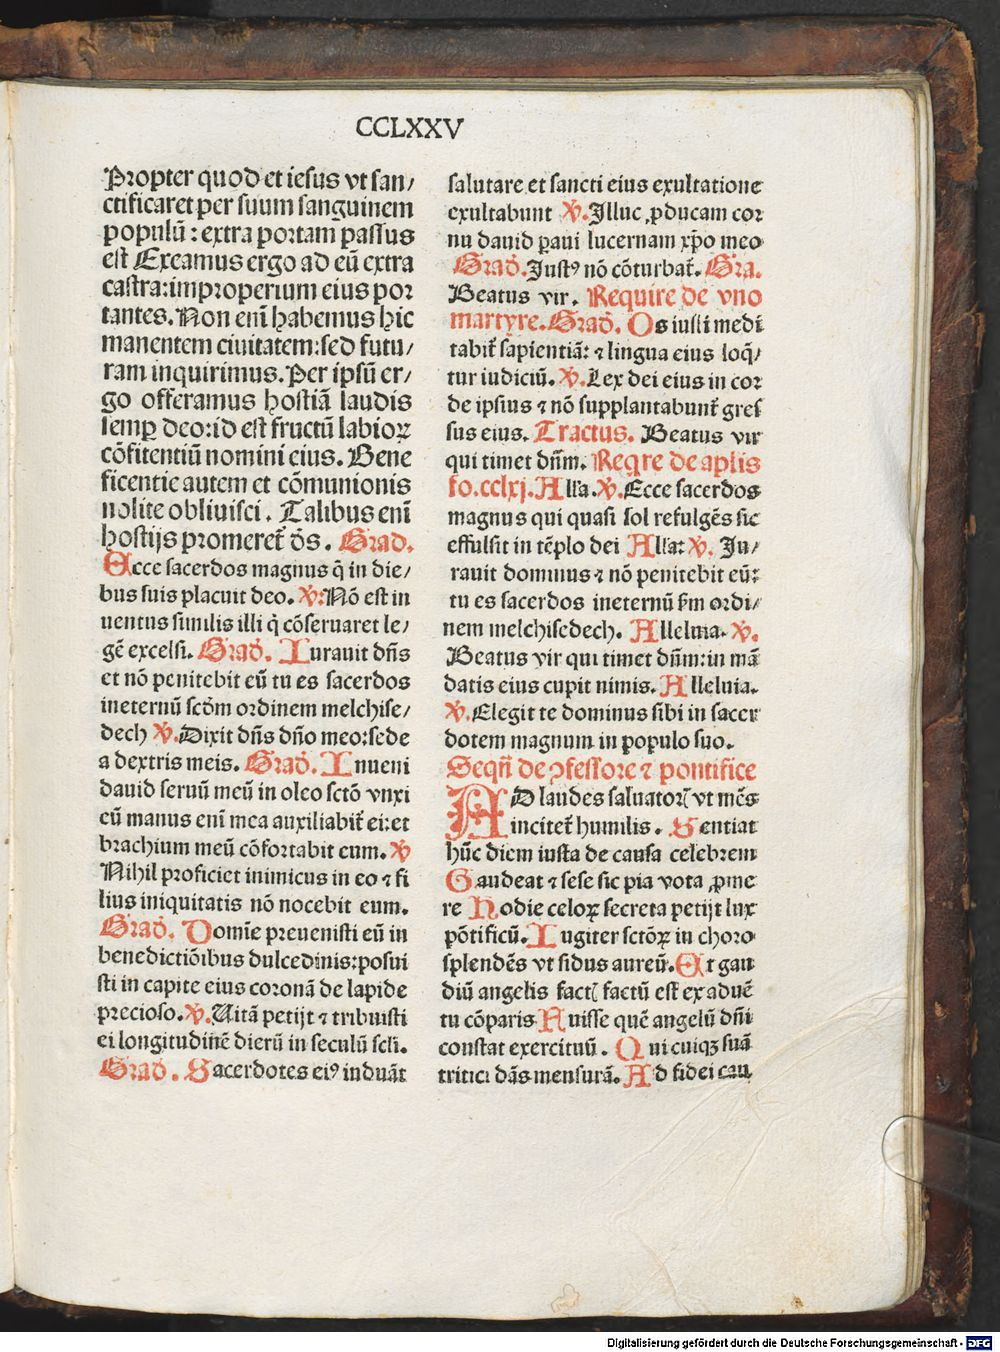 CCLXXV
Propter quod et iesus vt san/
ctificaret per suum sanguinem
populū : extra portam passus
est Exeamus ergo ad eū extra
castra: improperium eius por
tantes. Non enī habemus hic
manentem ciuitatem: sed futu/
ram inquirimus. Per ipsū er/
go offeramus hostiā laudis
semꝑ deo: id est fructū labioꝝ
cōfitentiū nomini eius. Bene
ficentie autem et cōmunionis
nolite obliuisci. Talibus enī
hostijs promeret̃ d̄s. Grad̄.
Ecce sacerdos magnus q̄ in die/
bus suis placuit deo. ℣: Nō est in
uentus similis illi q̇ cōseruaret le/
gē excelsi. Grad̄. Iurauit dñs
et nō penitebit eū tu es sacerdos
ineternū scđm ordinem melchise/
dech ℣. Dixit dñs dño meo: sede
a dextris meis. Grad̄. Inueni
dauid seruū meū in oleo sctō vnxi
eū manus enī mea auxiliabit̃ ei: et
brachium meū cōfortabit eum. ℣
Nihil proficiet inimicus in eo ⁊ fi
lius iniquitatis nō nocebit eum.
Grad̄. Domīe preuenisti eū in
benedictiōibus dulcedinis: posui
sti in capite eius coronā de lapide
precioso. ℣. Uitā petijt ⁊ tribuisti
ei longitudinē dierū in seculū scl̄i.
Grad̄. Sacerdotes eiꝰ induāt
salutare et sancti eius exultatione
exultabunt ℣. Illuc ꝓducam cor
nu dauid paui lucernam xp̄o meo
Grad̄. Iustꝰ nō cōturbat̃. Gra.
Beatus vir. Require de vno
martyre. Grad̄. Os iusti medi
tabit̃ sapientiā: ⁊ lingua eius loq̄/
tur iudiciū. ℣. Lex dei eius in cor
de ipsius ⁊ nō supplantabunt̃ gres
sus eius. Tractus. Beatus vir
qui timet dn̄m. Reqre de aplis
fo. cclxj. Alła. ℣. Ecce sacerdos
magnus qui quasi sol refulgēs sic
effulsit in tēplo dei Alła: ℣. Iu/
rauit dominus ⁊ nō penitebit eū:
tu es sacerdos ineternū sm̄ ordi/
nem melchisedech. Alleluia. ℣.
Beatus vir qui timet dn̄m: in mā
datis eius cupit nimis. Alleluia.
℣. Elegit te dominus sibi in sacer
dotem magnum in populo suo.
Seqn̄ de ꝯfessore ⁊ pontifice
AD laudes saluatorꝭ vt mēs
incitet̃ humilis. Sentiat
hūc diem iusta de causa celebrem
Gaudeat ⁊ sese sic pia vota ꝓme
re Hodie celoꝝ secreta petijt lux
pōtificū. Iugiter sctōꝝ in choro
splendēs vt sidus aureū. Et gau
diū angelis factꝭ factū est ex aduē
tu cōparis Nuisse quē angelū dñi
constat exercituū. Qui cuiqꝫ suā
tritici dās mensurā. Ad fidei cau
Digitalisierung gefördert durch die Deutsche Forschungsgemeinschaft - DFG